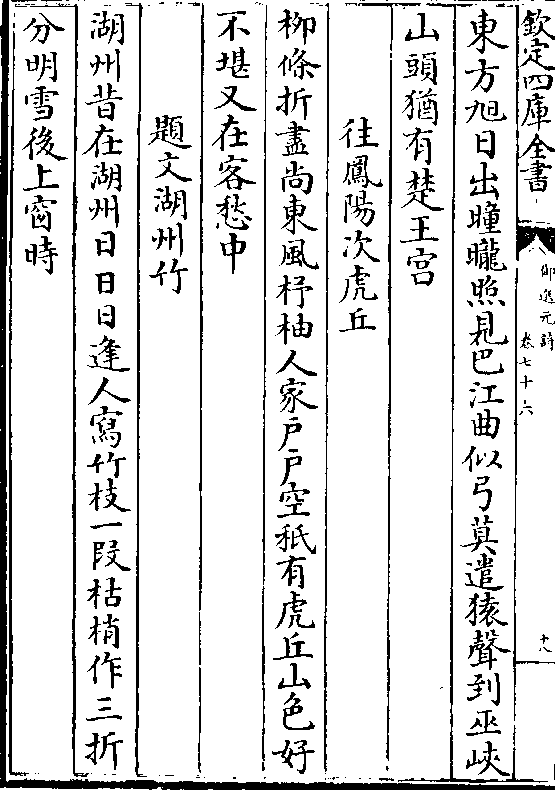 欽定四庫全書
御選元詩
卷七十六
十八
東方旭日出曈曨照見巴江曲似弓莫遣猿聲到巫峽
山頭猶有楚王宫
往鳳陽次虎丘
栁條折盡尚東風杼柚人家户户空秖有虎丘山色好
不堪又在客愁中
題文湖州竹
湖州昔在湖州日日日逢人寫竹枝一段枯梢作三折
分明雪後上窗時